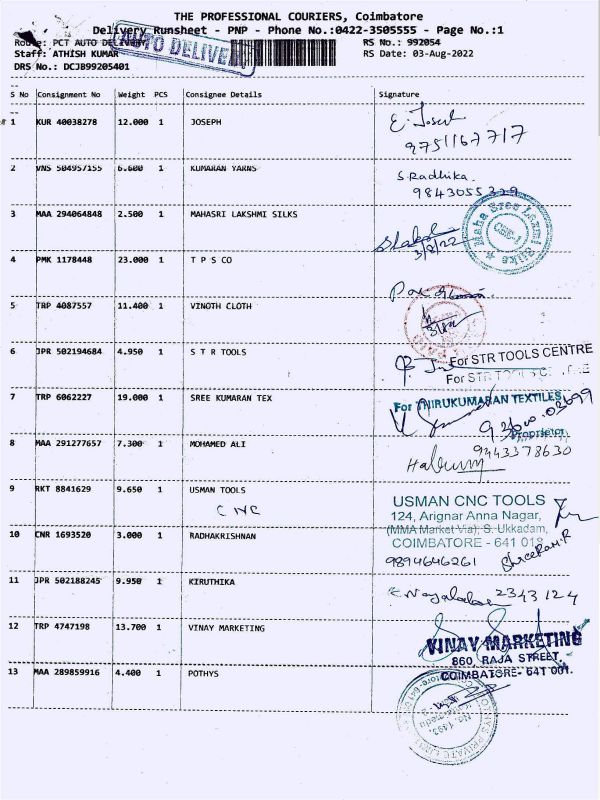 THE PROFESSIONAL COURIERS, Coimbatore
Delivery Runsheet - PNP - Phone No.:0422-3505555 - Page No.:1
Route: PCT AUTO DELIVERY
AUTO DELIVERY
RS No.: 992054
Staff: ATHISH KUMAR
RS Date: 03-Aug-2022
DRS No.: DCJB99205401
S No Consignment No Weight PCS Consignee Details Signature
1 KUR 40038278 12.000 1 JOSEPH E. Joseph
9751167717
2 VNS 504957155 6.600 1 KUMARAN YARNS S.Radhika.
9843055329
3 MAA 294064848 2.500 1 MAHASRI LAKSHMI SILKS
3/8/22
4 PMK 1178448 23.000 1 T P S CO
5 TRP 4087557 11.400 1 VINOTH CLOTH
6 JPR 502194684 4.950 1 S T R TOOLS For STR TOOLS CENTRE
For STR TOOLS CENTRE
7 TRP 6062227 19.000 1 SREE KUMARAN TEX For THIRUKUMARAN TEXTILES
Proprietor
8 MAA 291277657 7.300 1 MOHAMED ALI 9443378630
9 RKT 8841629 9.650 1 USMAN TOOLS USMAN CNC TOOLS
CNC
124, Arignar Anna Nagar,
(MMA Market Via), S. Ukkadam,
COIMBATORE - 641 018
10 CNR 1693520 3.000 1 RADHAKRISHNAN 9894646261 Shreeram.R
11 JPR 502188245 9.950 1 KIRUTHIKA 2343124
12 TRP 4747198 13.700 1 VINAY MARKETING VINAY MARKETING
860, RAJA STREET,
COIMBATORE- 641 001.
13 MAA 289859916 4.400 1 POTHYS